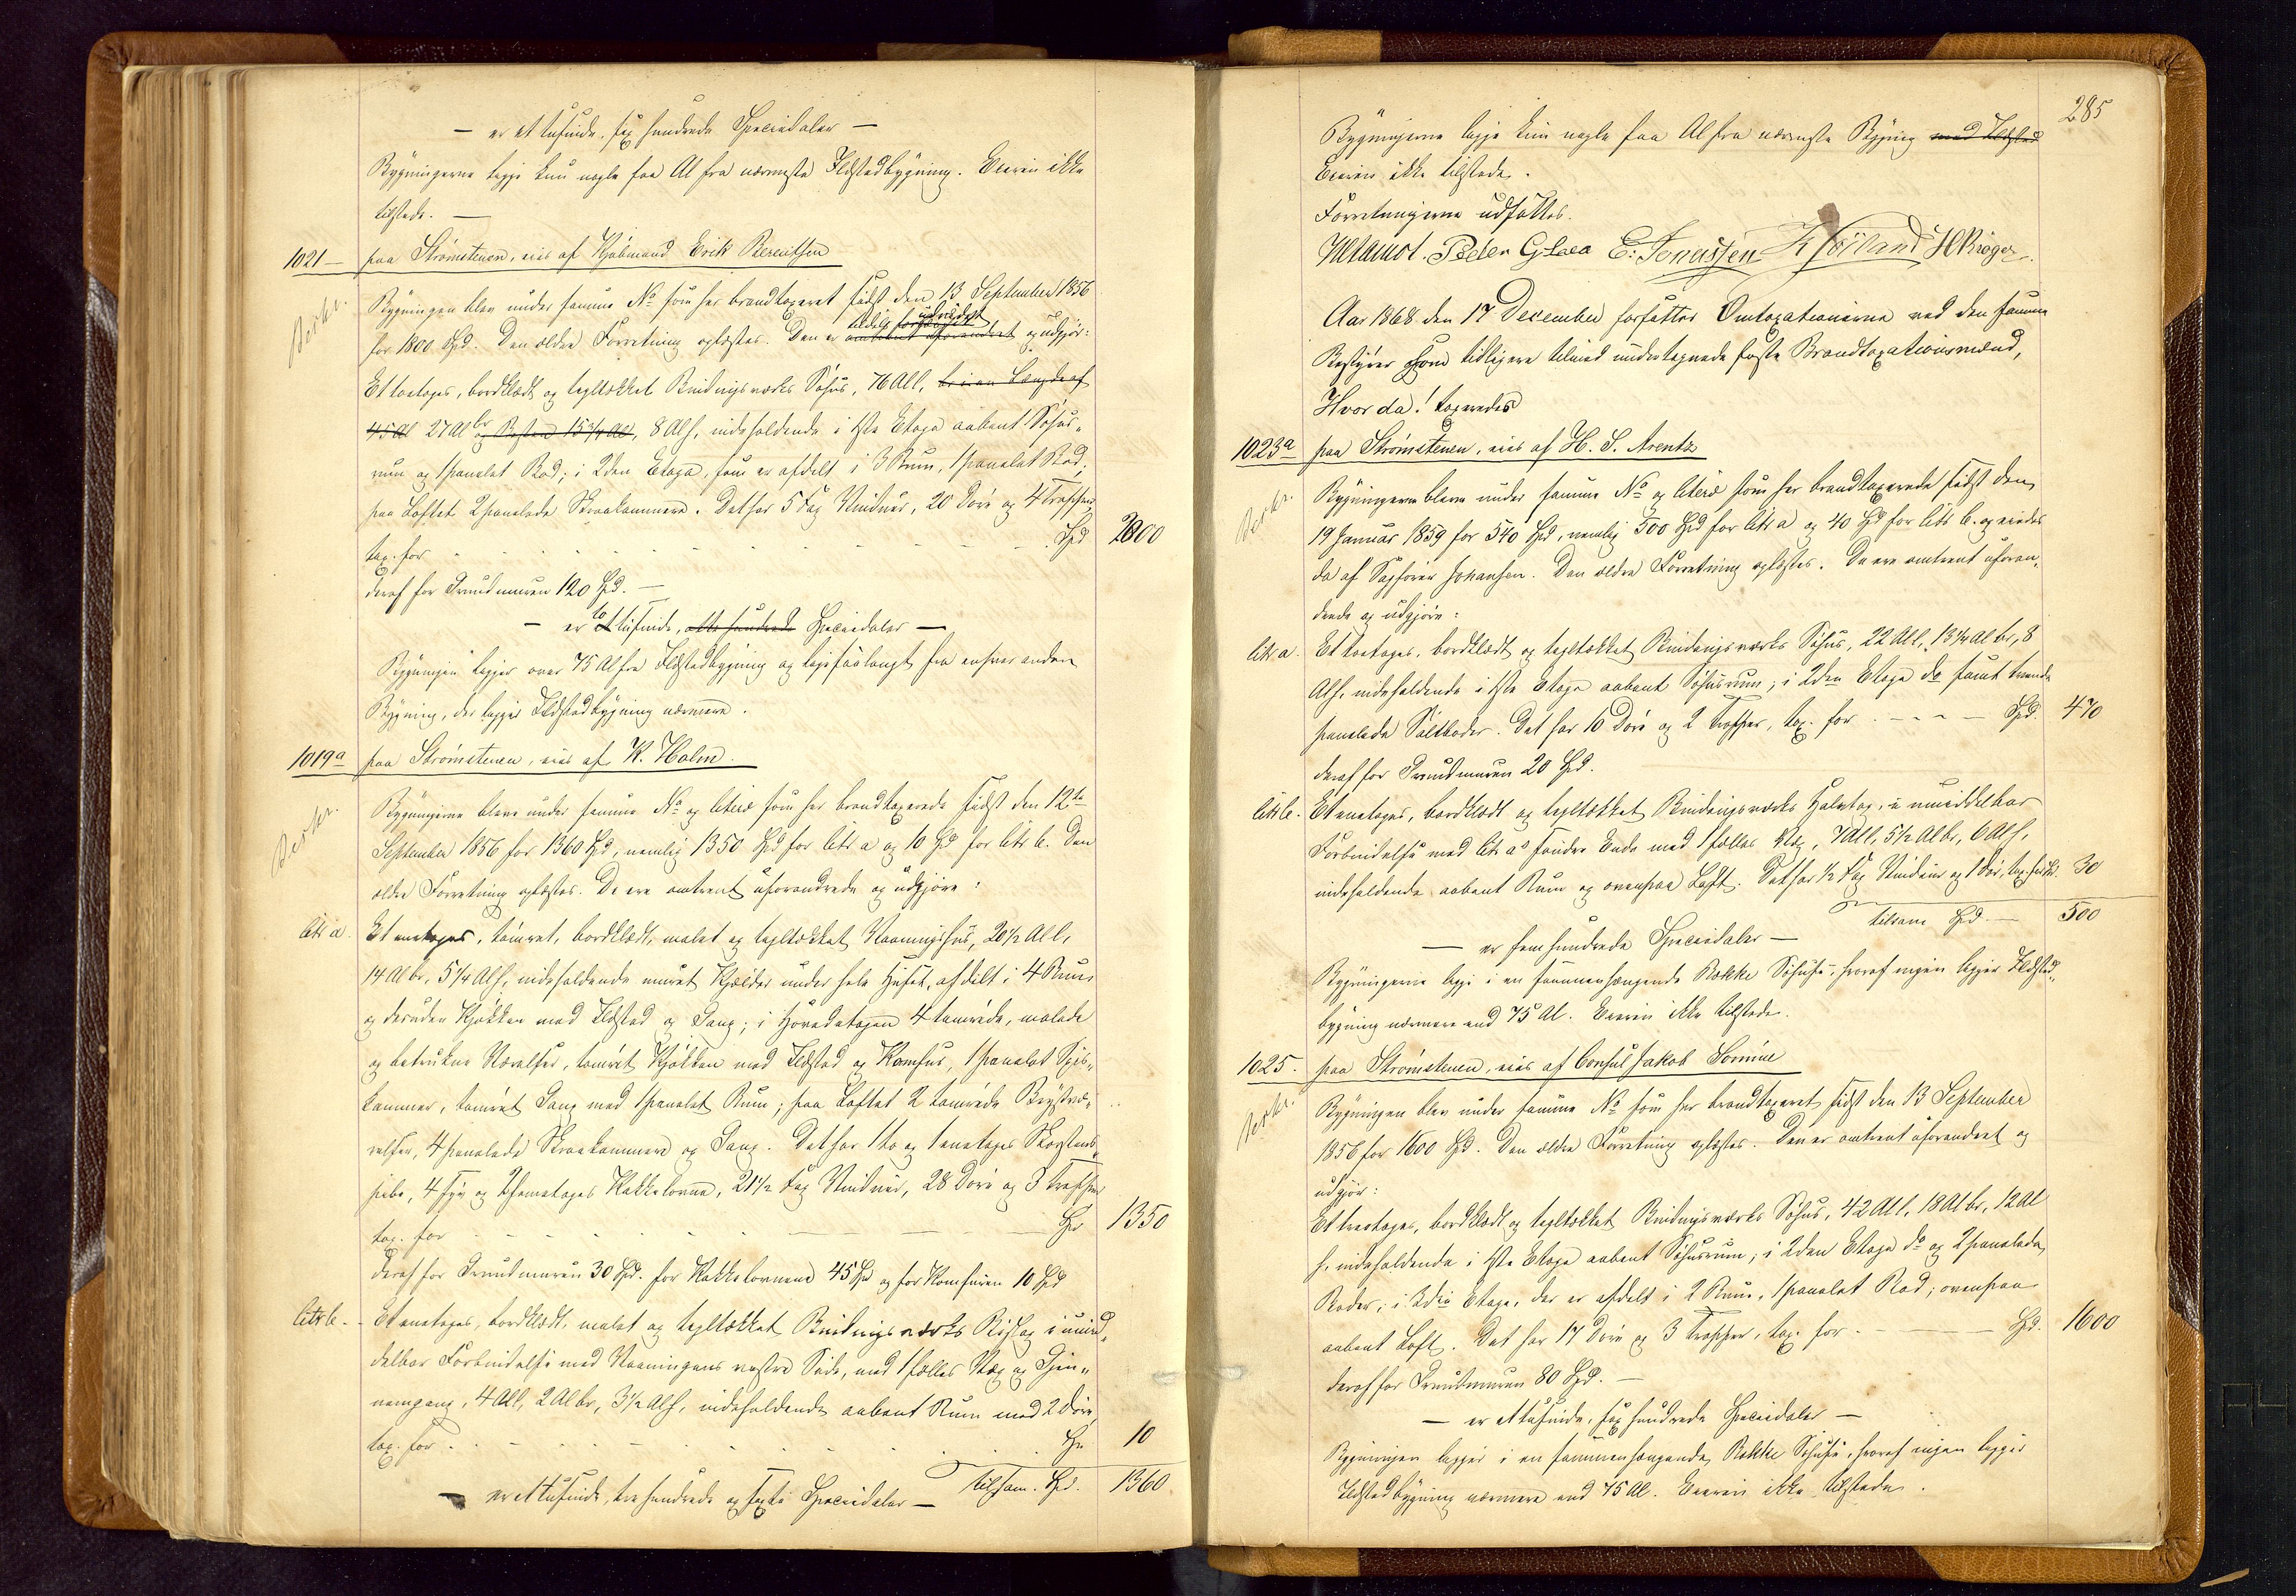 — er et tusinde, sex hundrede Speciedaler —
Bygningerne ligge kun nogle faa Al fra nærmeste Ildstedbygning. Eieren ikke
tilstede. —
1021 — paa Strømstenen, eies af Kjøbmand Erik Berentsen
Berkr.
Bygningen blev under samme No som her brandtaxeret sidst den 13 September 1856
for 1800 Spd. Den ældre Forretning oplæstes. Den er omtrent uforandret og udgjør:
tildels
Et toetages, bordklædt og tegltækket Bindingsværks Søhus, 76 Al l, hvoraf Længde af
45 Al 27 Al br og Resten 15 3/4 Al, 8 Al h, indeholdende i 1ste Etage aabent Søhus-
rum og 1 panelet Bod; i 2den Etage, som er afdelt i 3 Rum, 1 panelet Bod;
paa Loftet 2 panelede Skraakammere. Det har 5 Fag Vinduer, 20 Døre og 4 Trapper,
tax. for . . . Spd 2000
deraf for Grundmuren 120 Spd. —
— er to tusinde, otte hundrede Speciedaler —
Bygningen ligger over 75 Al fra Ildstedbygning og ligesaalangt fra enhver anden
Bygning, der ligger Ildstedbygning nærmere.
1019a paa Strømstenen, eies af K. Holm.
Berkr.
Bygningerne bleve under samme No og litera som her brandtaxerede sidst den 12te
September 1856 for 1360 Spd, nemlig 1350 Spd for litr a og 10 Spd for litr b. Den
ældre Forretning oplæstes. De ere omtrent uforandrede og udgjøre:
litr a. Et enetages, tømret, bordklædt, malet og tegltækket Vaaningshus, 20 1/2 Al l,
14 Al br, 5 1/4 Al h, indeholdende muret Kjælder under hele Huset, afdelt i 4 Rum
og desuden Kjøkken med Ildsted og Gang; i Hovedetagen 4 tømrede, malede
og betrukne Værelser, tømret Kjøkken med Ildsted og Komfur, 1 panelet Spis-
kammer, tømret Gang med 1 panelet Rum; paa Loftet 2 tømrede Kvistvæ-
relser, 4 panelede Skraakammere og Gang. Det har 1 to og 1 enetages Skorstens-
pibe, 4 Fyr og 2 femetages Kakkelovne, 21 1/2 Fag Vinduer, 28 Døre og 3 Trapper
tax. for . . . Spd 1350
deraf for Grundmuren 30 Spd. for Kakkelovnene 45 Spd og for Komfuren 10 Spd
litr b. Et enetages, bordklædt, malet og tegltækket Bindingsværks Bislag i umid-
delbar Forbindelse med Vaaningens vestre Side, med 1 fælles Væg og Gjen-
nemgang, 4 Al l, 2 Al br, 3 1/2 Al h, indeholdende aabent Rum med 2 Døre
tax. for . . . Spd 10
— er et tusinde, tre hundrede og sexti Speciedaler — tilsam. Spd. 1360
285
Bygningerne ligge kun nogle faa Al fra nærmeste Bygning med Ildsted
Eieren ikke tilstede.
Forretningerne udsattes.
Peder G Lea E: Tønnessen H Krøger.
Aar 1868 den 17 December fortsattes Omtaxationerne ved den samme
Bestyrer som tidligere tilligemed undertegnede faste Brandtaxationsmænd,
Hvorda! taxeredes
1023a paa Strømstenen, eies af H. S. Arentz
Berkr.
Bygningerne bleve under samme No og litera som her brandtaxerede sidst den
19 Januar 1859 for 540 Spd, nemlig 500 Spd for litr a og 40 Spd for litr b. og eiedes
da af Sagfører Johansen. Den ældre Forretning oplæstes. De ere omtrent uforan-
drede og udgjøre:
litr a. Et toetages, bordklædt og tegltækket Bindingsværks Søhus, 22 Al l, 13 1/4 Al br, 8
Al h, indeholdende i 1ste Etage aabent Søhusrum; i 2den Etage do samt tvende
panelede Saltboder. Det har 10 Døre og 2 Trapper, tax. for . — — — Spd. 470
deraf for Grundmuren 20 Spd.
litr b. Et enetages, bordklædt og tegltækket Bindingsværks Halvtag, i umiddelbar
Forbindelse med litr a's søndre Ende med 1 fælles Væg, 7 Al l, 5 1/2 Al br, 6 Al h,
indeholdende aabent Rum og ovenpaa Loft. Det har 1/2 Fag Vinduer og 1 Dør, tax. for Spd. 30
tilsam Spd — 500
— er fem hundrede Speciedaler —
Bygningerne ligge i en sammenhængende Række Søhuse, hvoraf ingen ligger Ildsted-
bygning nærmere end 75 Al. Eieren ikke tilstede.
1025. paa Strømstenen, eies af Consul Jakob Sømme
Berkr.
Bygningen blev under samme No som her brandtaxeret sidst den 13 September
1856 for 1600 Spd. Den ældre Forretning oplæstes. Den er omtrent uforandret og
udgjør:
Et treetages, bordklædt og tegltækket Bindingsværks Søhus, 42 Al l, 18 Al br, 12 Al
h, indeholdende i 1ste Etage aabent Søhusrum; i 2den Etage do og 2 panelede
Boder; i 3die Etage, der er afdelt i 2 Rum, 1 panelet Bod; ovenpaa
aabent Loft. Det har 17 Døre og 3 Trapper, tax. for . — — Spd. 1600
deraf for Grundmuren 80 Spd. —
— er et tusinde, sex hundrede Speciedaler —
Bygningen ligger i en sammenhængende Række Søhuse, hvoraf ingen ligger
Ildstedbygning nærmere end 75 Al. Eieren ikke tilstede.